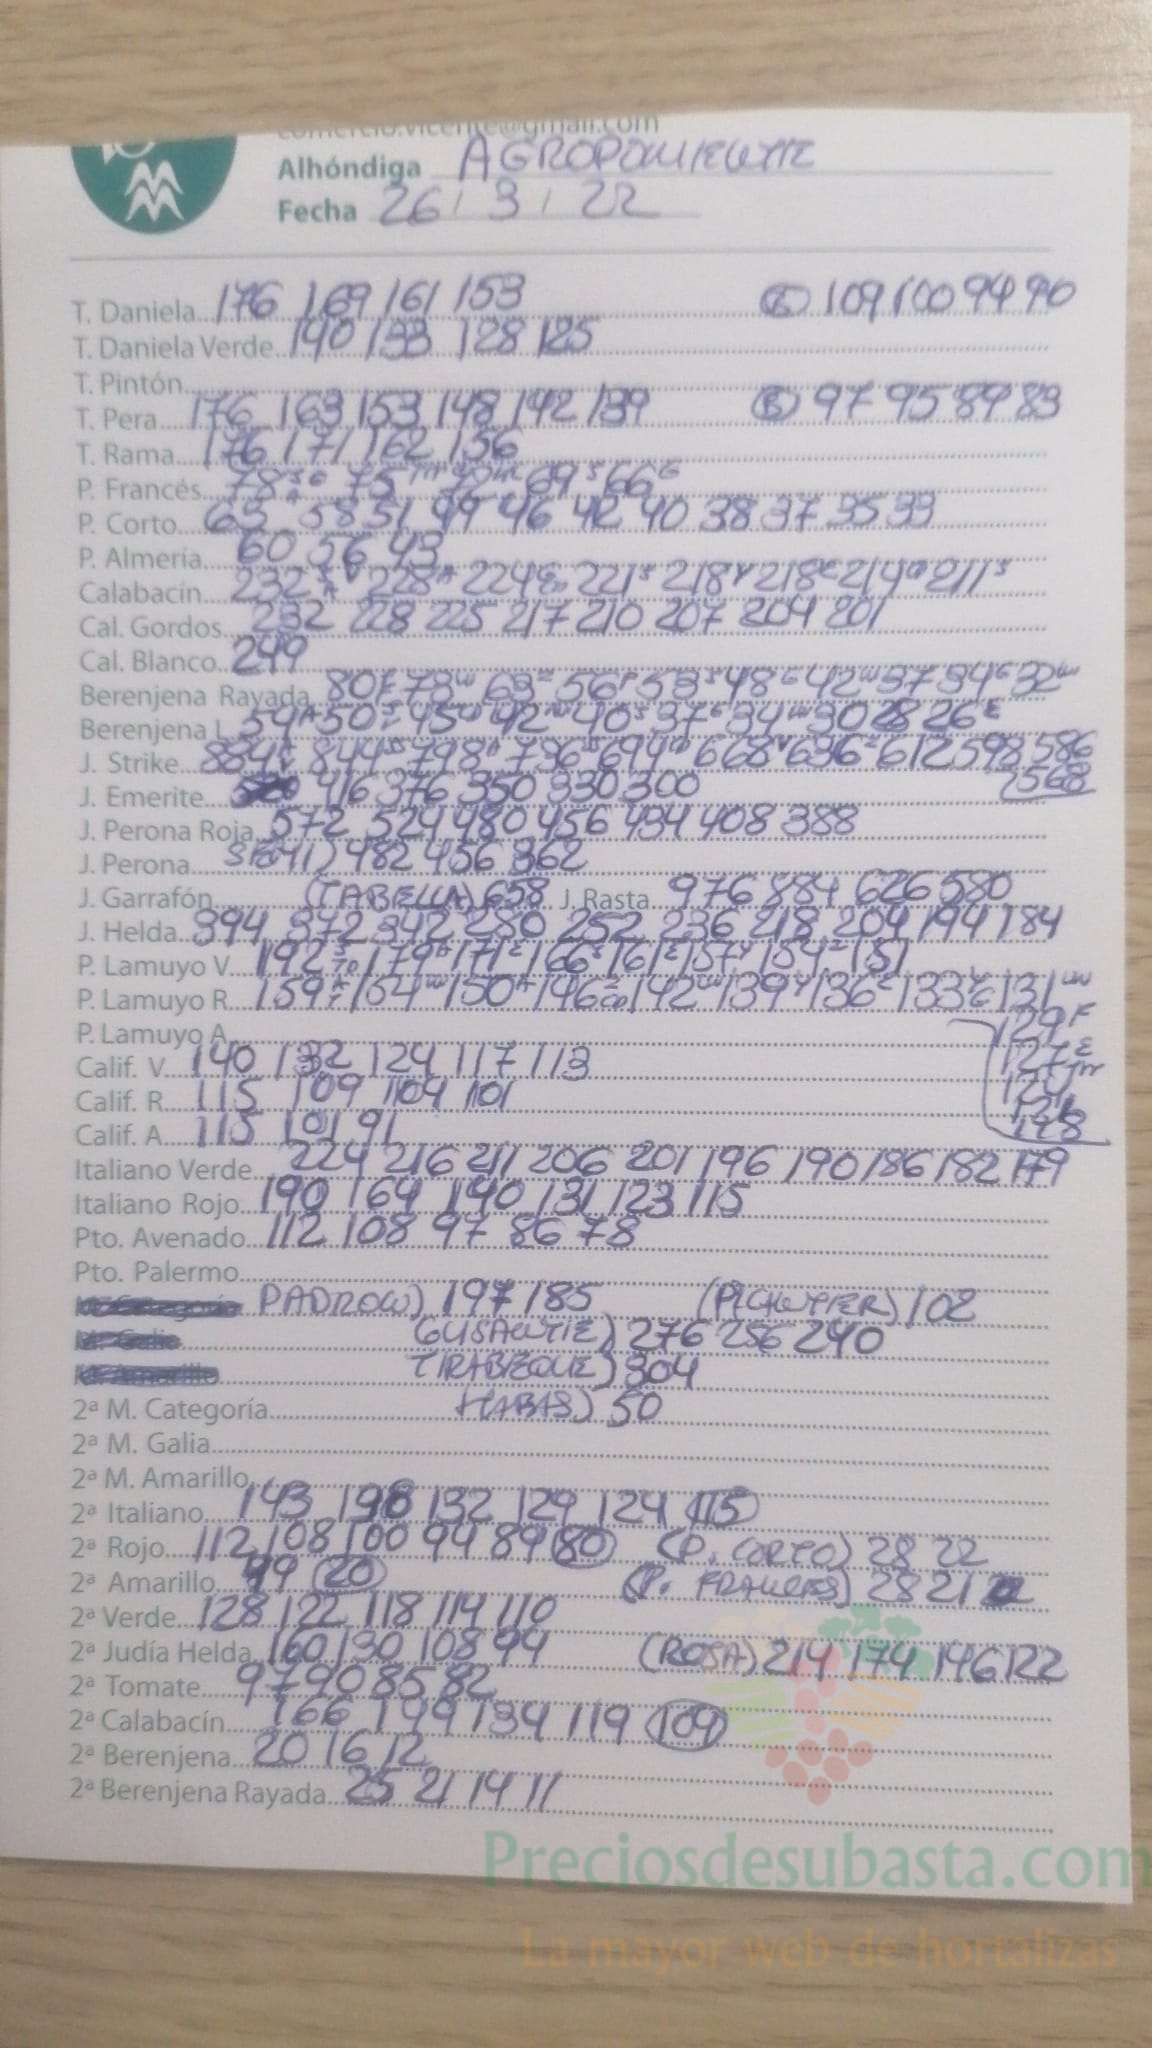 comercio.vicente@gmail.com
Alhóndiga AGROPONIENTE
Fecha 26 / 3 / 22
T. Daniela 176 169 161 153 109 100 94 90
T. Daniela Verde 140 133 128 125
T. Pintón
T. Pera 176 163 153 148 142 139 (B) 97 95 89 83
T. Rama 176 171 162 156
P. Francés 78 75 70 69 S 66 G
P. Corto 63 58 51 49 46 42 40 38 37 35 33
P. Almería 60 56 43
Calabacín 232 228 224 221 S 218 Y 218 C 214 211 S
Cal. Gordos 232 228 225 217 210 207 204 201
Cal. Blanco 249
Berenjena Rayada 80 F 73 63 56 F 53 48 G 42 37 34 G 32
Berenjena L 54 A 50 45 42 40 S 37 G 34 30 28 26 E
J. Strike 884 844 798 A 736 694 668 Y 636 612 598 586
568
J. Emerite 416 376 350 330 300
J. Perona Roja 572 524 480 456 434 408 388
J. Perona 482 456 362
J. Garrafón (TABELLA) 658 J. Rasta 976 884 626 580
J. Helda 394 372 342 280 252 236 218 204 194 184
P. Lamuyo V 192 179 171 166 161 157 Y 154 151
P. Lamuyo R 159 154 150 A 146 142 139 Y 136 133 131
129 F
P. Lamuyo A
127 E
Calif. V 140 132 124 117 113
Calif. R 115 109 104 101
Calif. A 115 101 91
Italiano Verde 224 216 211 206 201 196 190 186 182 179
Italiano Rojo 190 164 140 131 123 115
Pto. Avenado 112 108 97 86 78
Pto. Palermo
PADRON) 197 185 102
GUISANTE) 276 256 240
TIRABEQUE) 304
2ª M. Categoría HABAS) 50
2ª M. Galia
2ª M. Amarillo
2ª Italiano 143 132 129 124 115
2ª Rojo 112 108 100 94 89 80 (P. CORTO) 28 22
2ª Amarillo 49 20 (P. FRANCES) 28 21
2ª Verde 128 122 118 114 110
2ª Judía Helda 160 130 108 94 (ROJA) 214 174 146 122
2ª Tomate 97 90 85 82
2ª Calabacín 166 149 134 119 109
2ª Berenjena 20 16 12
2ª Berenjena Rayada 25 21 14 11
Preciosdesubasta.com
La mayor web de hortalizas